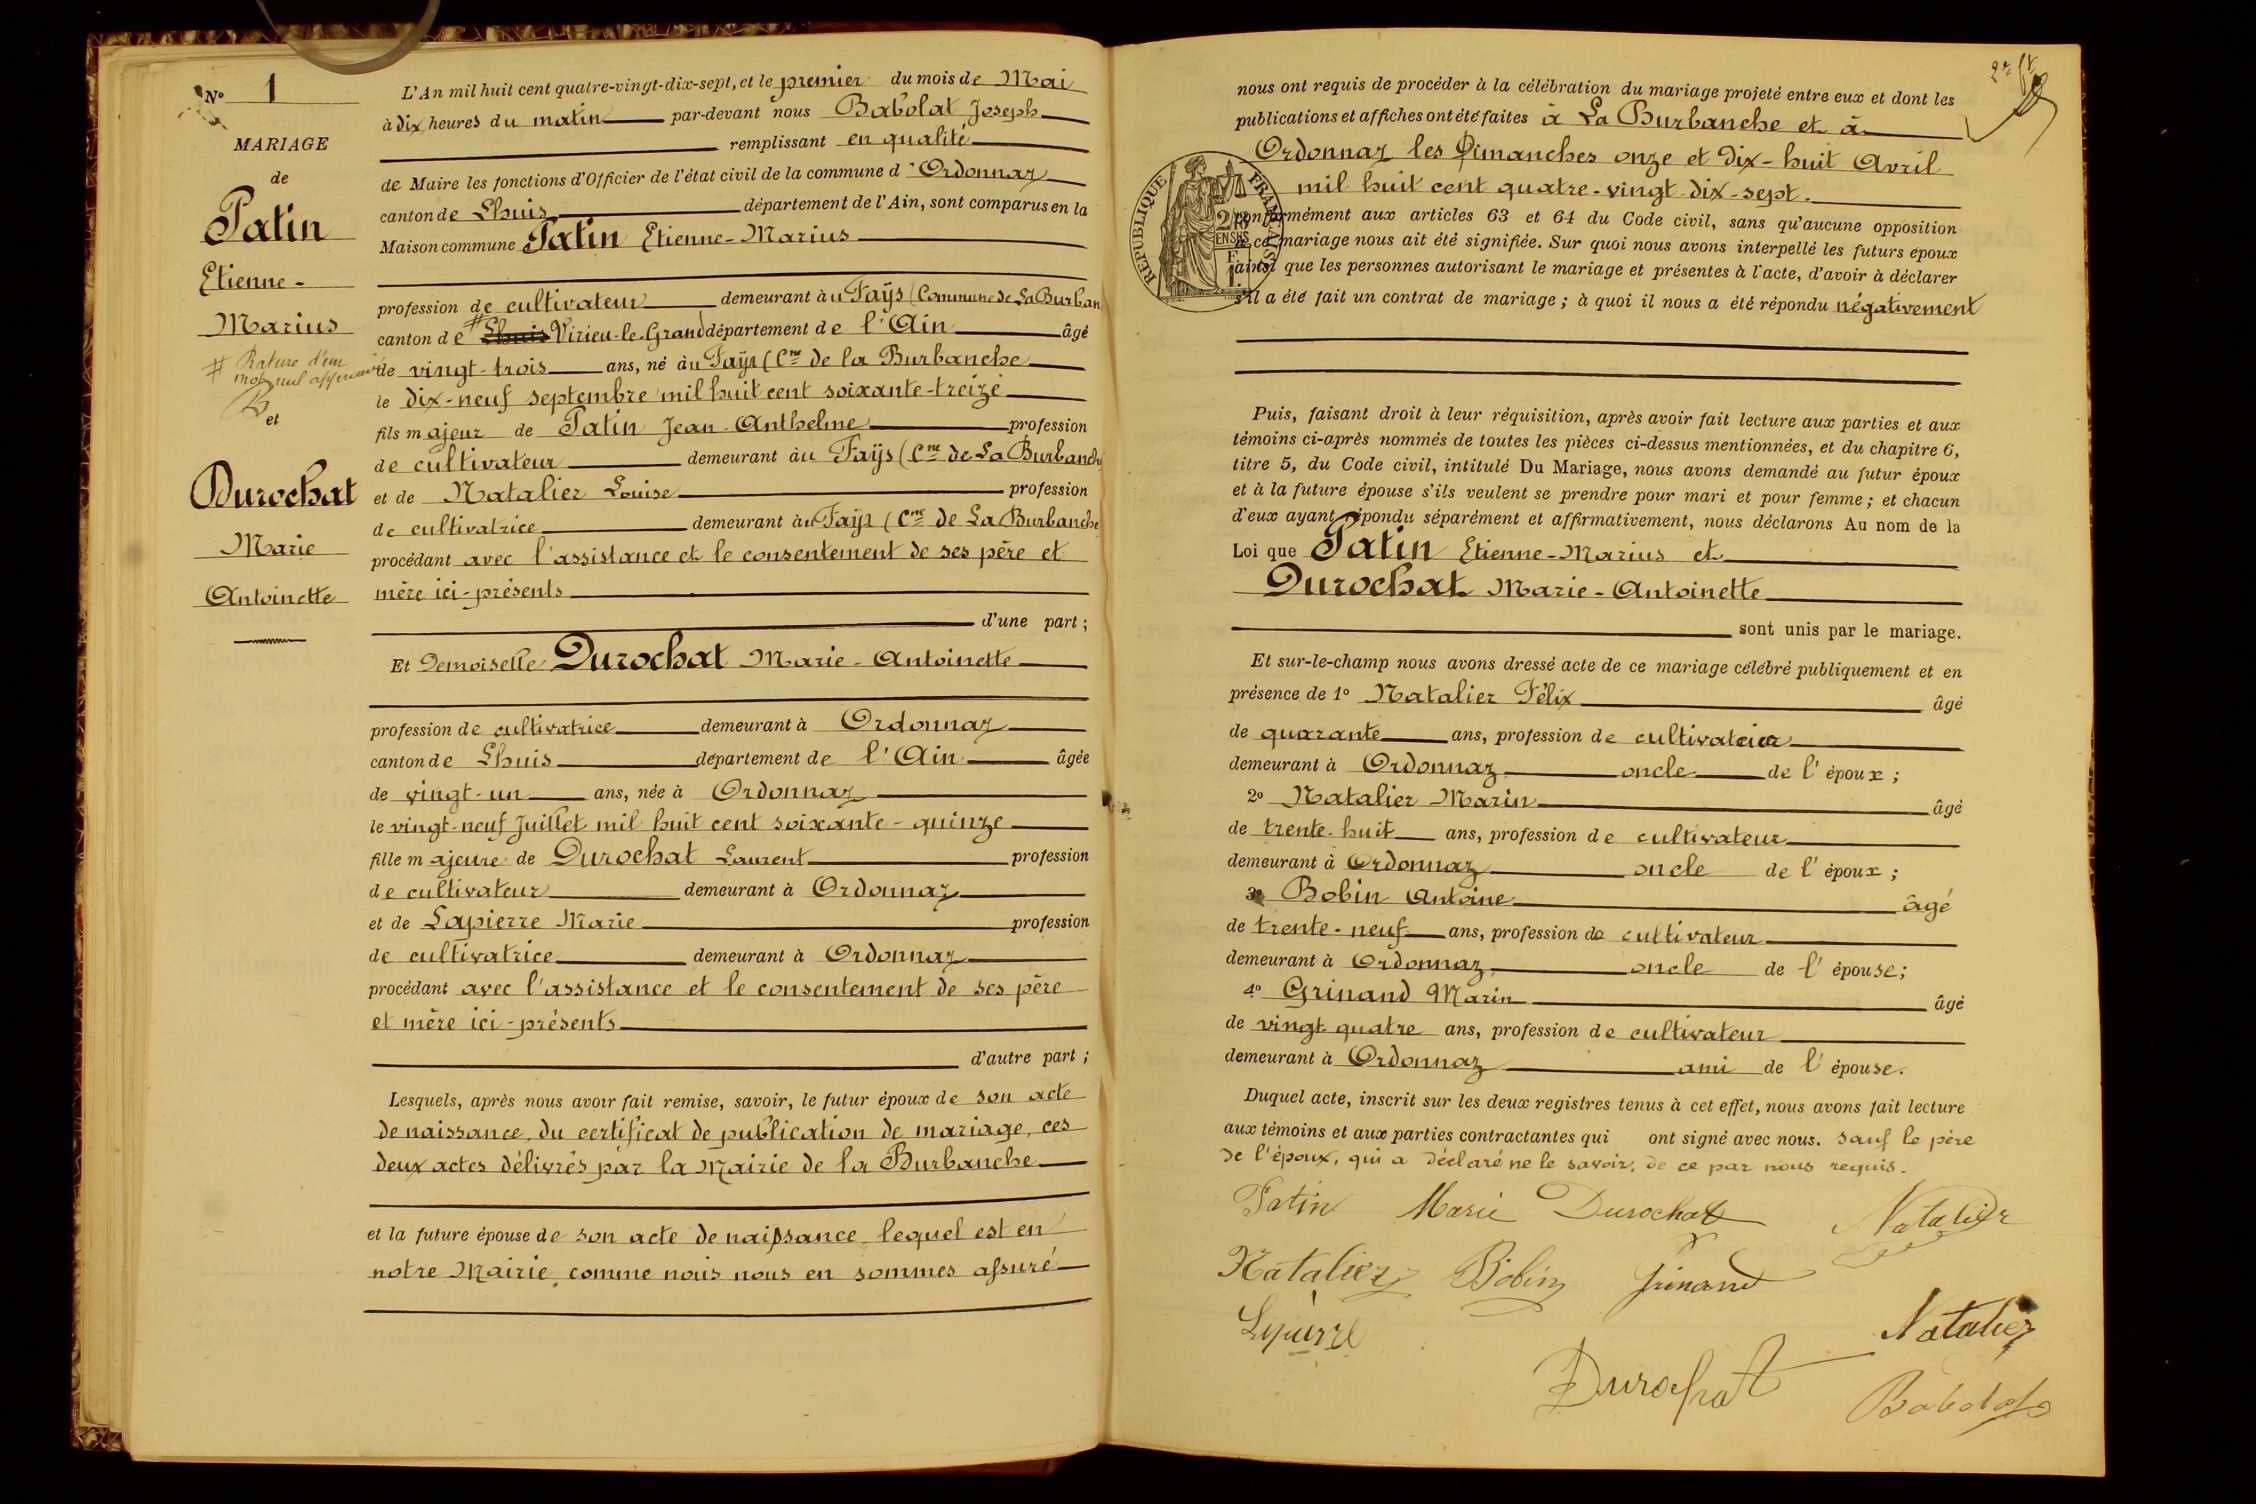 N° 1
MARIAGE
de
Patin
Etienne-
Marius
# Rature d'un
mot nul
B
et
Durochat
Marie
Antoinette
L'An mil huit cent quatre-vingt-dix-sept, et le premier du mois de Mai
à dix heures du matin par-devant nous Babolat Joseph
remplissant en qualité
de Maire les fonctions d'Officier de l'état civil de la commune d'Ordonnaz
canton de Lhuis département de l'Ain, sont comparus en la
Maison commune Patin Etienne-Marius
profession de cultivateur demeurant au Faÿs (Commune de La Burban
canton de # Lhuis Virieu-le-Grand département de l'Ain âgé
de vingt-trois ans, né au Faÿs (Cne de la Burbanche
le dix-neuf septembre mil huit cent soixante-treize
fils majeur de Patin Jean-Anthelme profession
de cultivateur demeurant au Faÿs (Cne de La Burbanche
et de Natalier Louise profession
de cultivatrice demeurant au Faÿs (Cne de La Burbanche
procédant avec l'assistance et le consentement de ses père et
mère ici-présents
d'une part ;
Et Demoiselle Durochat Marie-Antoinette
profession de cultivatrice demeurant à Ordonnaz
canton de Lhuis département de l'Ain âgée
de vingt-un ans, née à Ordonnaz
le vingt-neuf Juillet mil huit cent soixante-quinze
fille majeure de Durochat Laurent profession
de cultivateur demeurant à Ordonnaz
et de Lapierre Marie profession
de cultivatrice demeurant à Ordonnaz
procédant avec l'assistance et le consentement de ses père
et mère ici-présents
d'autre part ;
Lesquels, après nous avoir fait remise, savoir, le futur époux de son acte
de naissance, du certificat de publication de mariage, ces
deux actes délivrés par la Mairie de la Burbanche
et la future épouse de son acte de naissance lequel est en
notre Mairie, comme nous nous en sommes assuré
nous ont requis de procéder à la célébration du mariage projeté entre eux et dont les
publications et affiches ont été faites à La Burbanche et à
Ordonnaz les Dimanches onze et dix-huit Avril
mil huit cent quatre-vingt-dix-sept.
conformément aux articles 63 et 64 du Code civil, sans qu'aucune opposition
à ce mariage nous ait été signifiée. Sur quoi nous avons interpellé les futurs époux
ainsi que les personnes autorisant le mariage et présentes à l'acte, d'avoir à déclarer
s'il a été fait un contrat de mariage ; à quoi il nous a été répondu négativement
REPUBLIQUE FRANÇAISE
Puis, faisant droit à leur réquisition, après avoir fait lecture aux parties et aux
témoins ci-après nommés de toutes les pièces ci-dessus mentionnées, et du chapitre 6,
titre 5, du Code civil, intitulé Du Mariage, nous avons demandé au futur époux
et à la future épouse s'ils veulent se prendre pour mari et pour femme ; et chacun
d'eux ayant répondu séparément et affirmativement, nous déclarons Au nom de la
Loi que Patin Etienne-Marius et
Durochat Marie-Antoinette
sont unis par le mariage.
Et sur-le-champ nous avons dressé acte de ce mariage célébré publiquement et en
présence de 1° Natalier Félix âgé
de quarante ans, profession de cultivateur
demeurant à Ordonnaz oncle de l'époux ;
2° Natalier Marin âgé
de trente-huit ans, profession de cultivateur
demeurant à Ordonnaz oncle de l'époux ;
3° Bobin Antoine âgé
de trente-neuf ans, profession de cultivateur
demeurant à Ordonnaz oncle de l'épouse ;
4° Grinand Marin âgé
de vingt-quatre ans, profession de cultivateur
demeurant à Ordonnaz ami de l'épouse.
Duquel acte, inscrit sur les deux registres tenus à cet effet, nous avons fait lecture
aux témoins et aux parties contractantes qui ont signé avec nous. sauf le père
de l'époux, qui a déclaré ne le savoir, de ce par nous requis.
Patin Marie Durochat Natalier
Natalier Bobin Grinand
Natalier
Durochat
Babolat